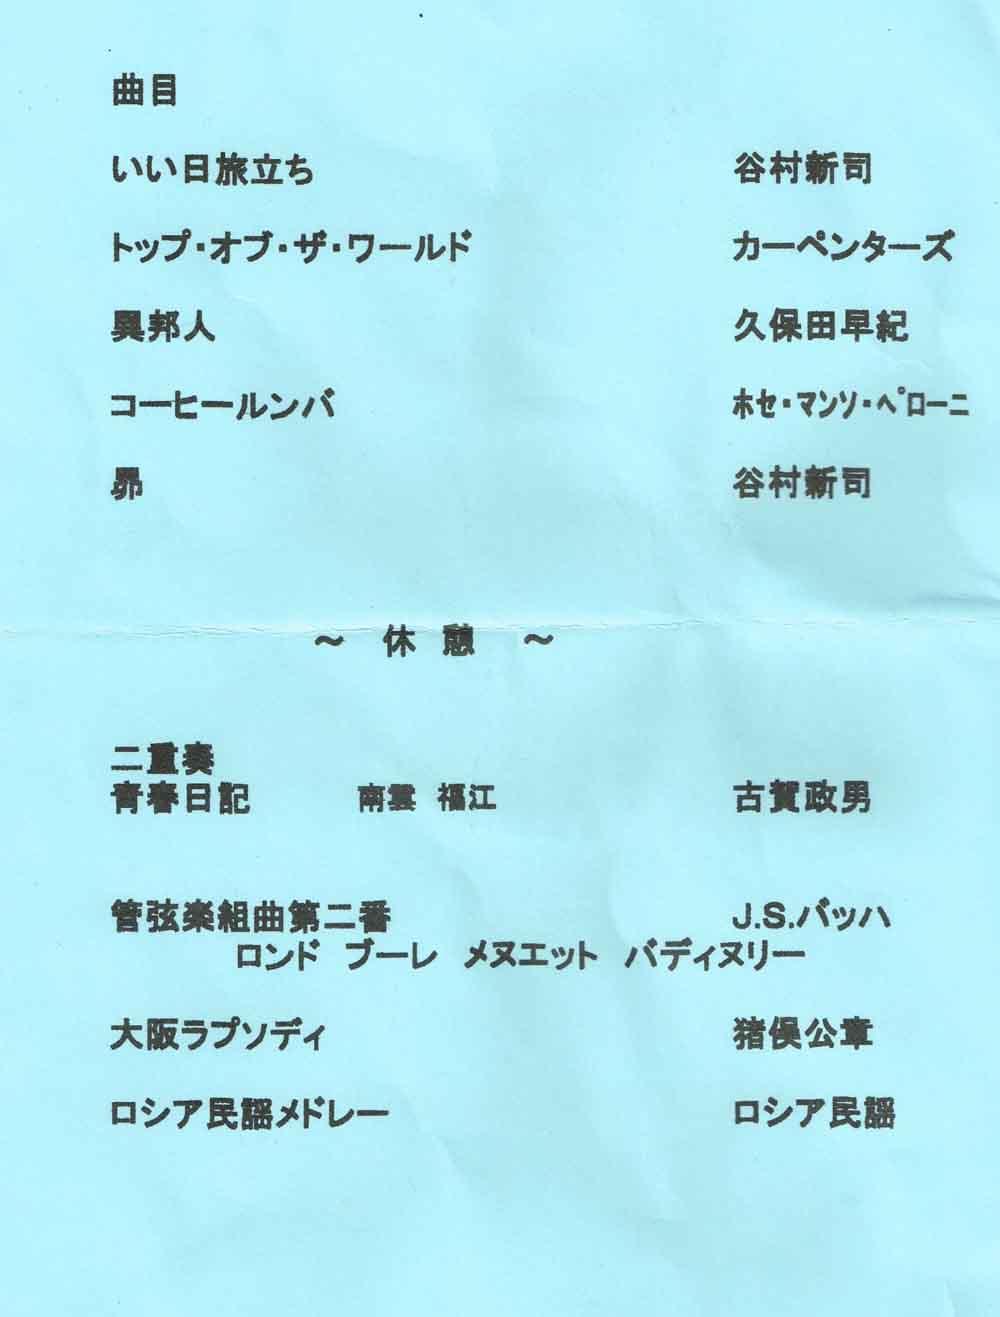 曲目
いい日旅立ち 谷村新司
トップ・オブ・ザ・ワールド カーペンターズ
異邦人 久保田早紀
コーヒールンバ ホセ・マンソ・ペローニ
昴 谷村新司
～ 休 憩 ～
二重奏
青春日記 南雲 福江 古賀政男
管弦楽組曲第二番 J.S.バッハ
ロンド ブーレ メヌエット バディヌリー
大阪ラプソディ 猪俣公章
ロシア民謡メドレー ロシア民謡